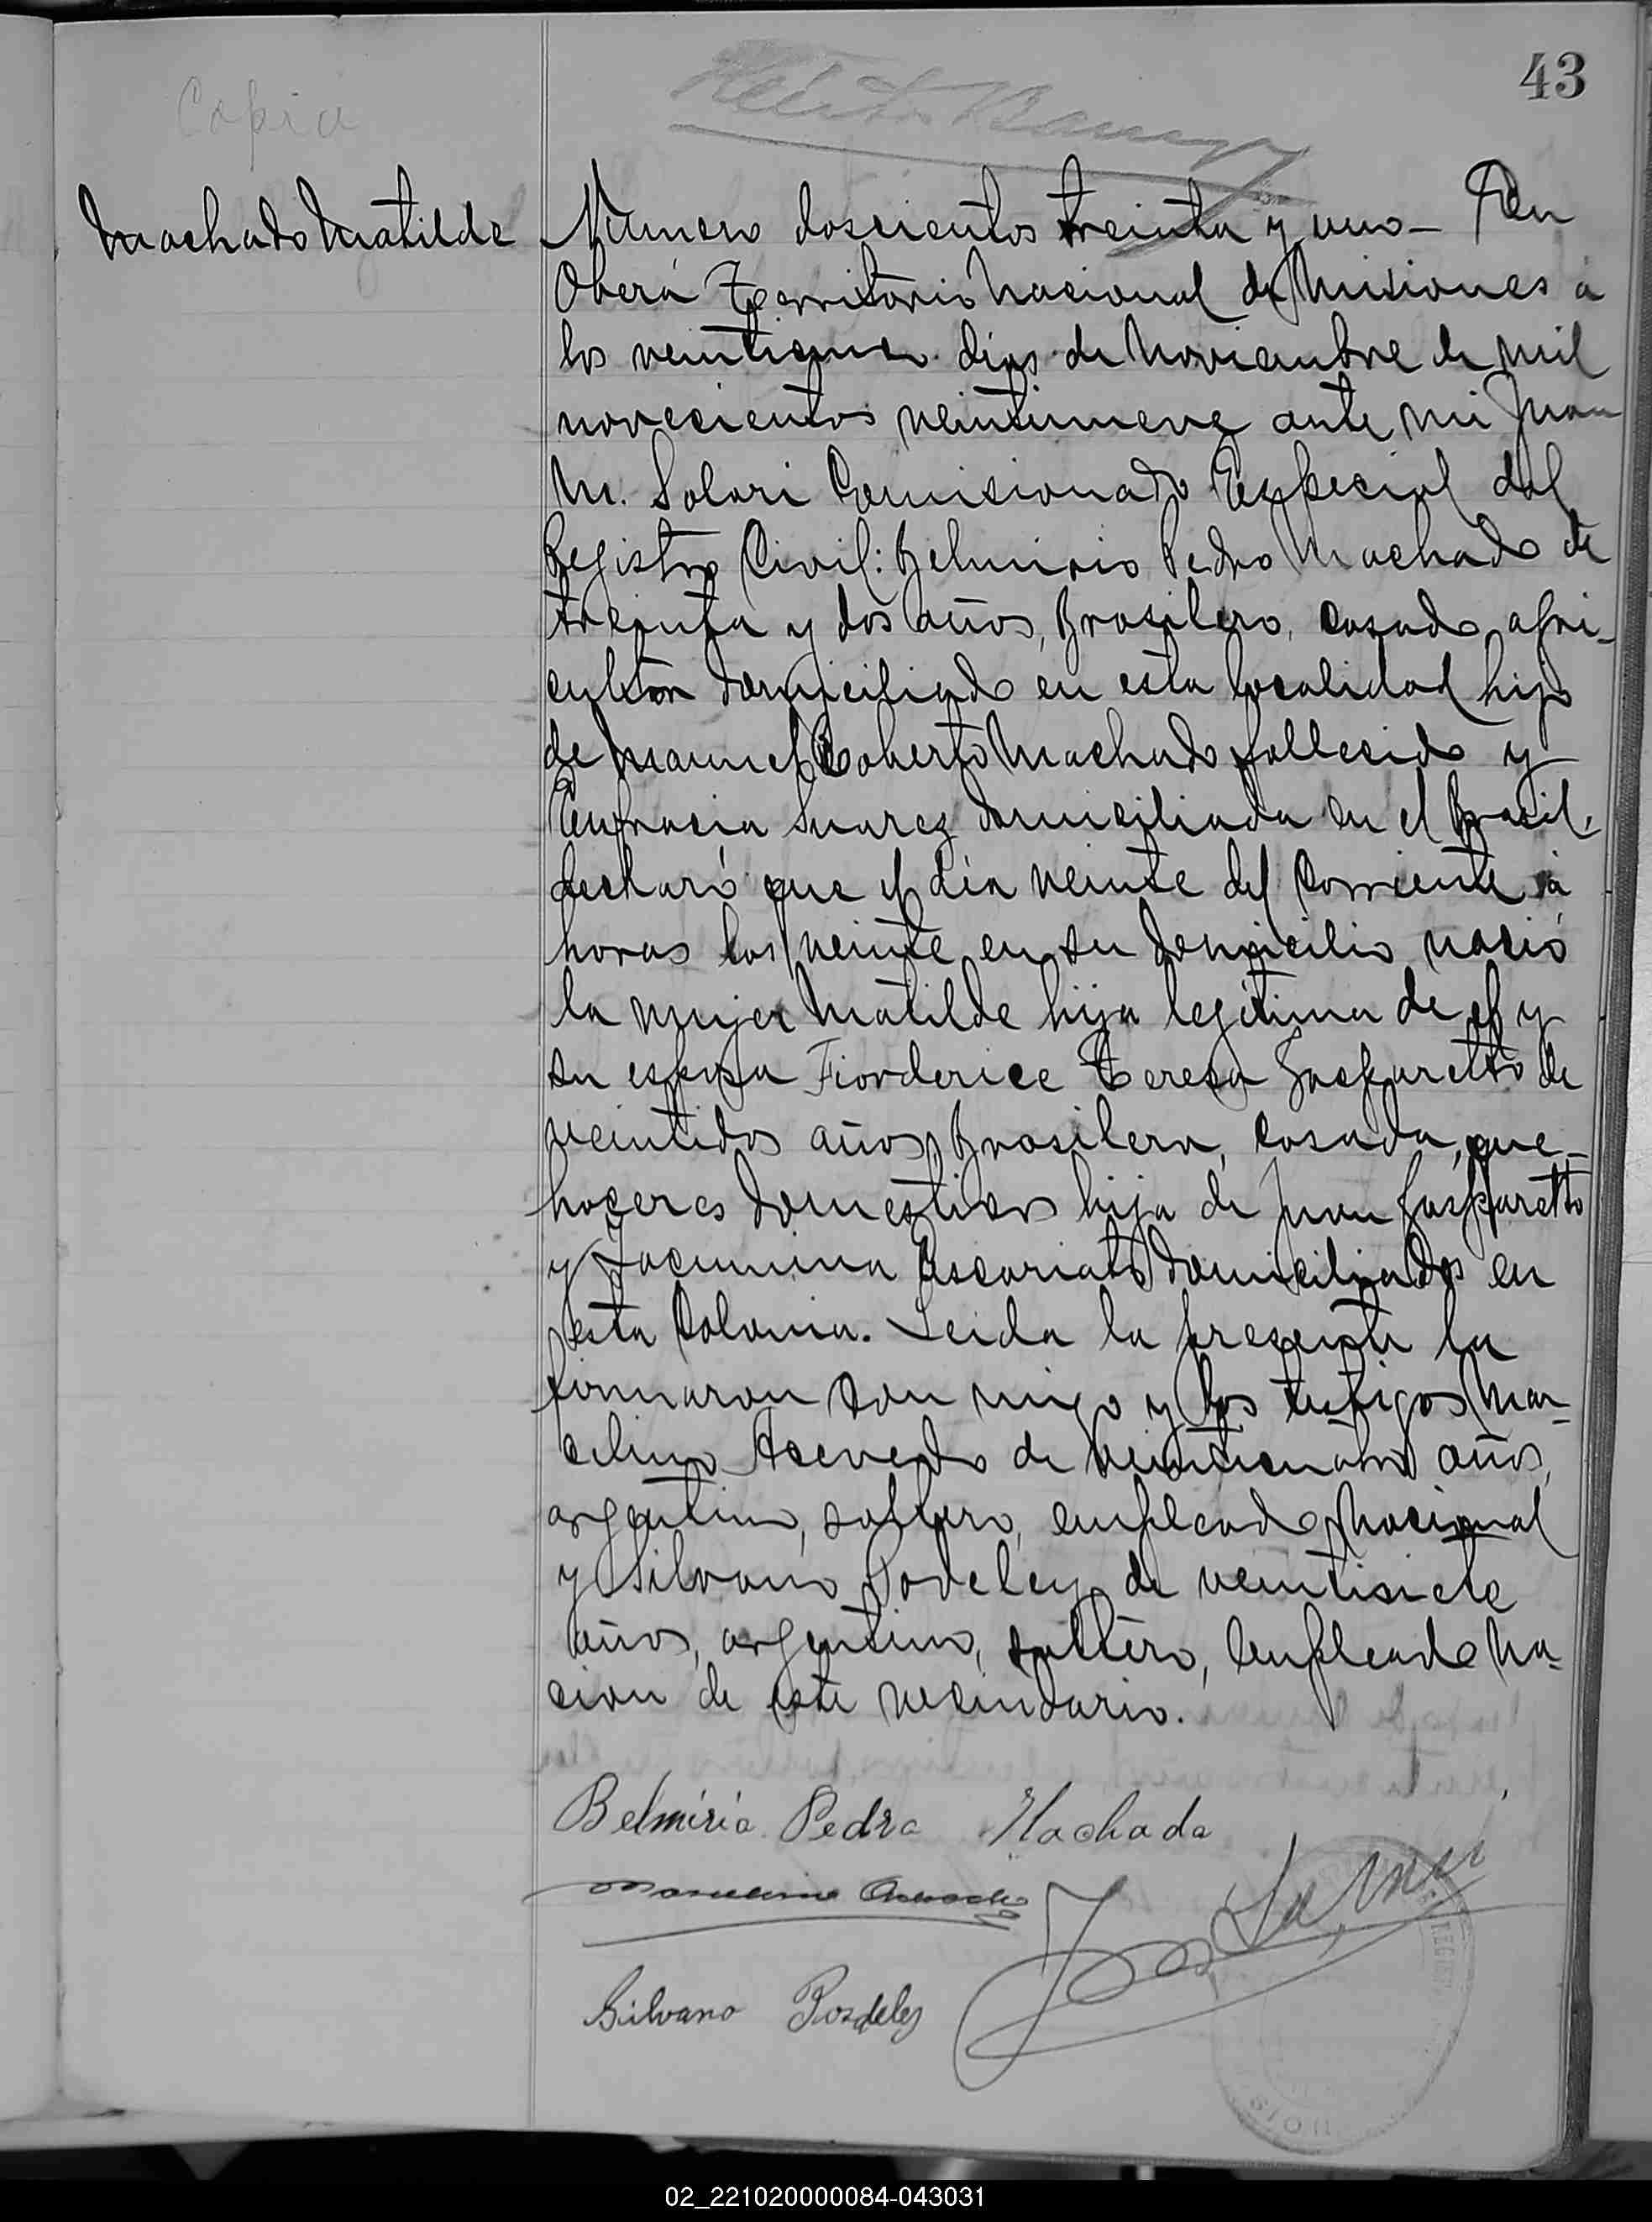 43
Copia
Machado Matilde
Numero doscientos treinta y uno — En
Oberá Territorio Nacional de Misiones á
los veintiquatro dias de Noviembre de mil
novecientos veintinueve ante mi Juan
M. Solari Comisionado Especial del
Registro Civil: Belmirio Pedro Machado de
treinta y dos años, Brasilero, casado, agri-
cultor domiciliado en esta localidad hijo
de Manuel Roberto Machado fallecido y
Eufracia Suarez domiciliada en el Brasil,
declaró que el dia veinte del corriente á
horas las veinte en su domicilio nació
la mujer Matilde hija legitima de el y
su esposa Fiorderice Teresa Gasparetto de
veintidos años, Brasilera, casada, que-
haceres domesticos hija de Juan Gasparetto
y Jacumina Escariato domiciliados en
esta Colonia. Leida la presente la
firmaron con migo y los testigos Mar-
celino Acevedo de veinticuatro años,
argentino, soltero, empleado Nacional
y Silvano Podeley de veintisiete
años, argentino, soltero, empleado Na-
cion de este vecindario.
Belmirio Pedro Machado
Marcelino Acevedo
Silvano Pozdeley
02_221020000084-043031